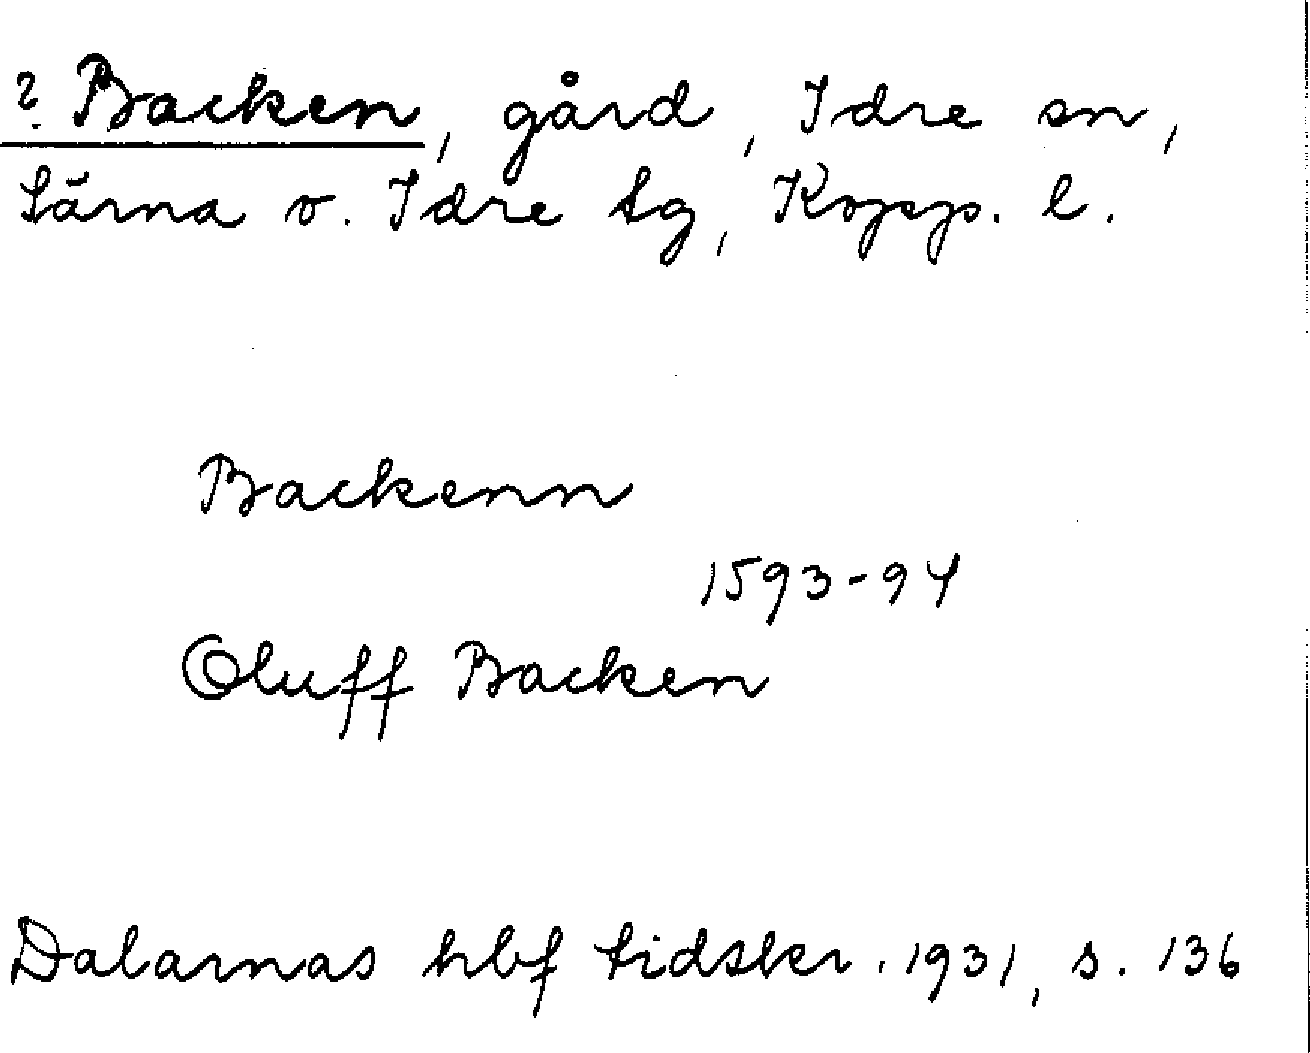 ? Backen, gård, Idre sn,
Särna o. Idre tg, Kopp. l.
Backenn
1593-94
Oluff Backen
Dalarnas hbf tidskr. 1931, s. 136